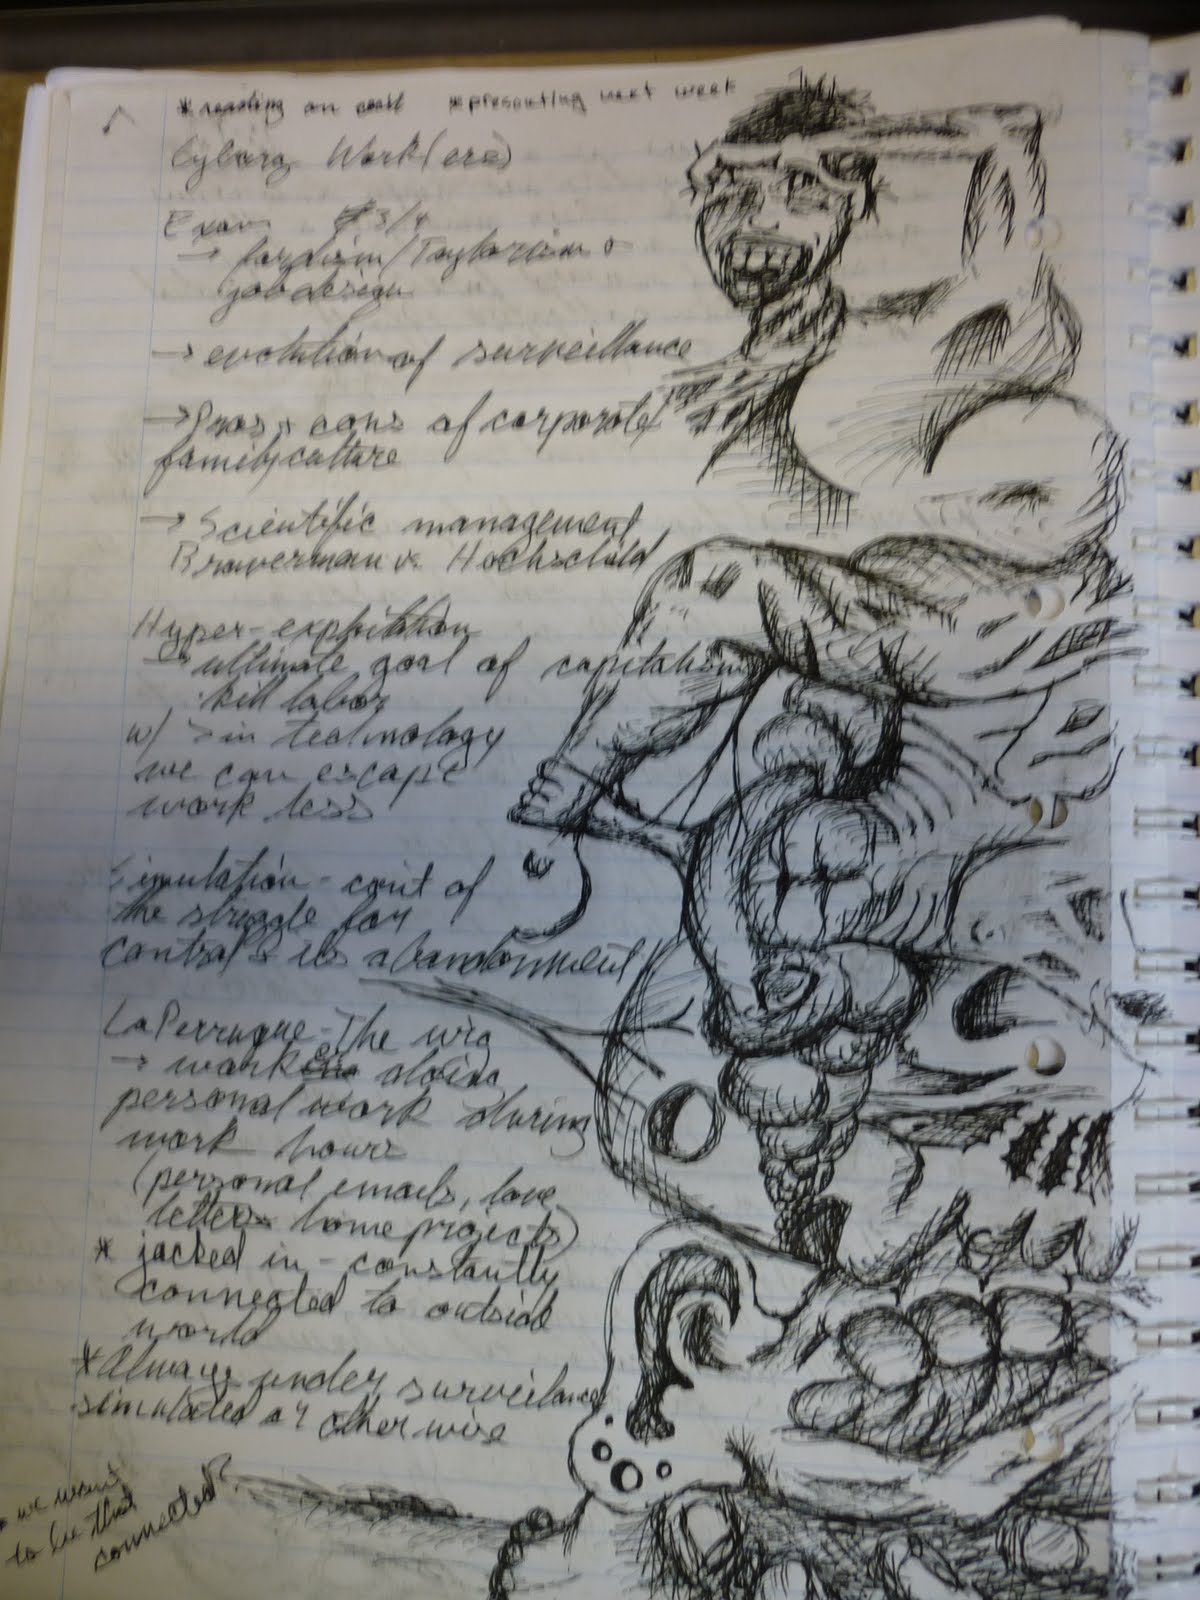 *reading on *presenting next week
Cyborg Work(ers)
Exam 3/4
→ fordism/Taylorism &
job design
→ evolution of surveillance
→ Pros + cons of corporate
family culture
→ Scientific management
Braverman v. Hochschild
Hyper-exploitation
→ ultimate goal of capitalism
· kill labor
w/ > in technology
we can escape
work less
Simulation - cont of
the struggle for
control & its abandonment
LaPerruque - The wig
→ worker doing
personal work during
work hours
(personal emails, love
letters home projects)
* jacked in - constantly
connected to outside
world
*Always under surveilance
simulated or otherwise
we want
to be this
connected?